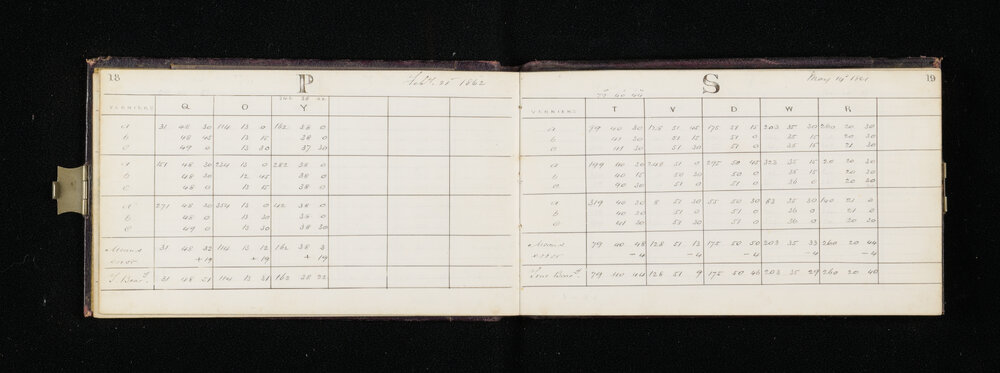 18
P
Feby. 25 1862
242 38 22
VERNIERS Q O Y
a 31 48 30 114 13 0 162 38 0
b 48 45 13 15 38 0
c 49 0 13 30 37 30
a 151 48 30 234 13 0 282 38 0
b 48 30 12 45 38 0
c 48 0 13 15 38 0
a 271 48 30 354 13 0 42 38 0
b 48 0 13 30 38 0
c 49 0 13 30 38 30
Means 31 48 32 114 13 12 162 38 3
error +19 +19 +19
T. Bear.g 31 48 51 114 13 31 162 38 22
19
S
May 14th 1861
79 40 44
VERNIERS T V D W R
a 79 40 30 128 51 45 175 51 15 203 35 30 260 20 30
b 41 30 51 15 51 0 35 15 20 30
c 41 30 51 30 51 0 35 15 21 30
a 199 40 30 248 51 0 295 50 45 323 35 15 20 20 30
b 40 15 50 30 50 0 35 15 20 30
c 40 30 51 0 51 0 36 0 20 30
a 319 40 30 8 51 30 55 50 30 83 35 30 140 21 0
b 40 30 51 0 51 0 36 0 21 0
c 41 30 51 30 51 0 36 0 20 30
Means 79 40 48 128 51 13 175 50 50 203 35 33 260 20 44
error -4 -4 -4 -4 -4
True Bear.g 79 40 44 128 51 9 175 50 46 203 35 29 260 20 40